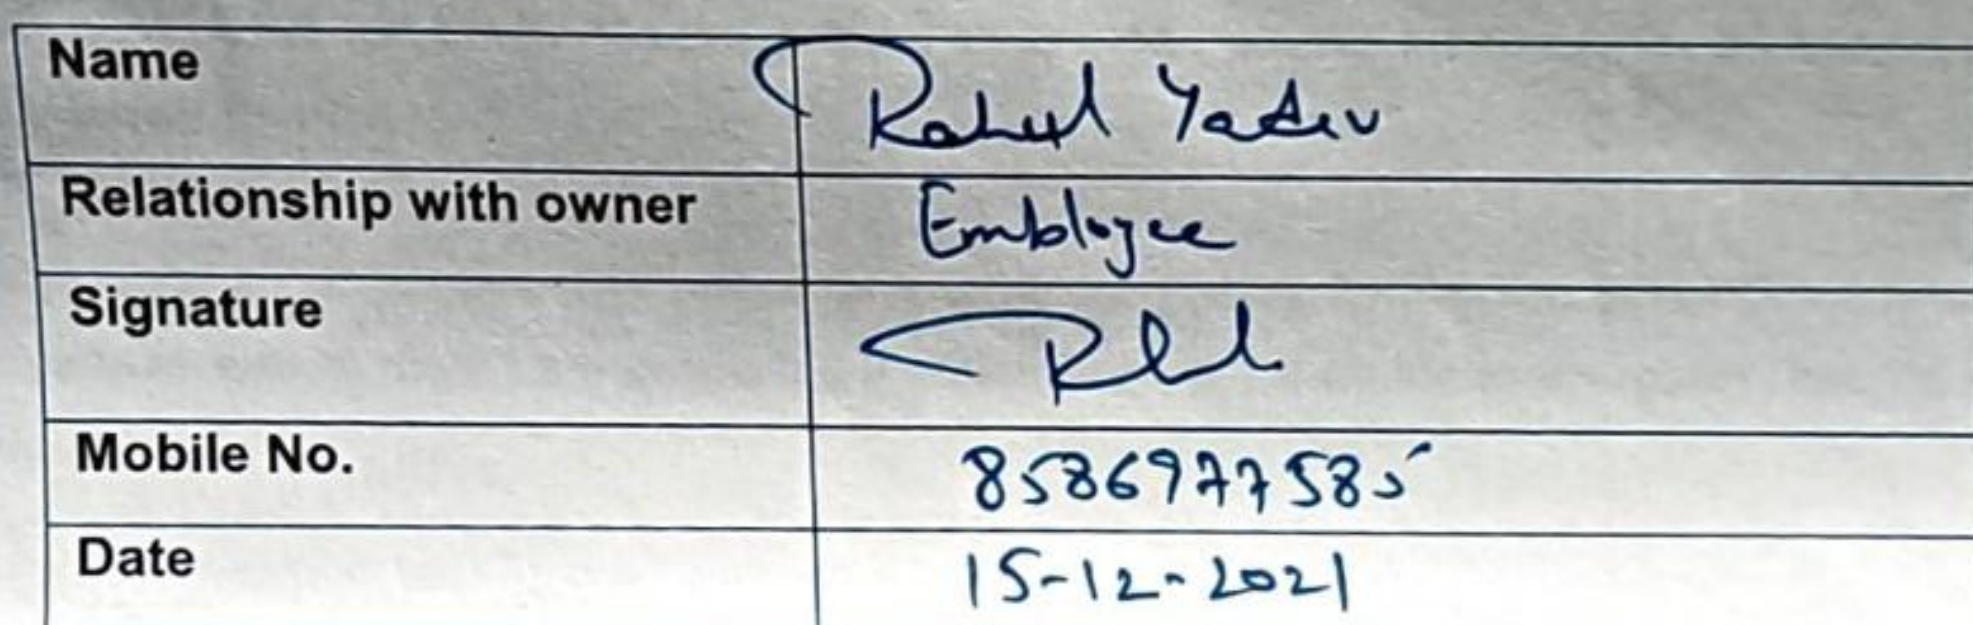 Name Rahul Yadav
Relationship with owner Embloyee
Signature
Mobile No. 8586977585
Date 15-12-2021